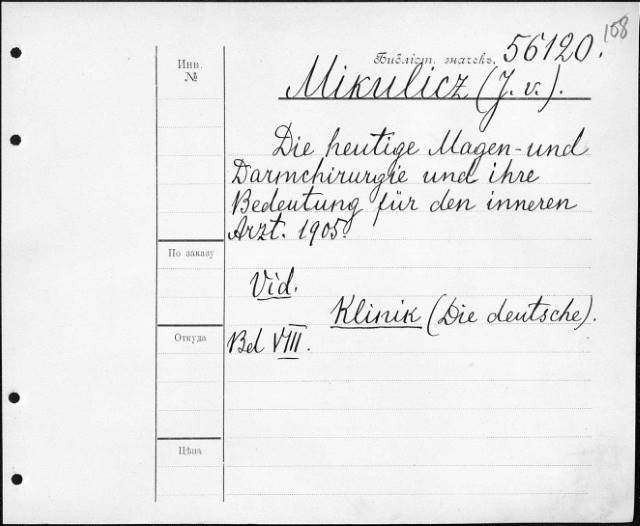 158
Инв. №
Библіот. значекъ. 56120.
Mikulicz (J. v.).
Die heutige Magen- und
Darmchirurgie und ihre
Bedeutung für den inneren
Arzt. 1905.
По заказу
Vid.
Klinik (Die deutsche).
Откуда
Bd VIII.
Цѣна